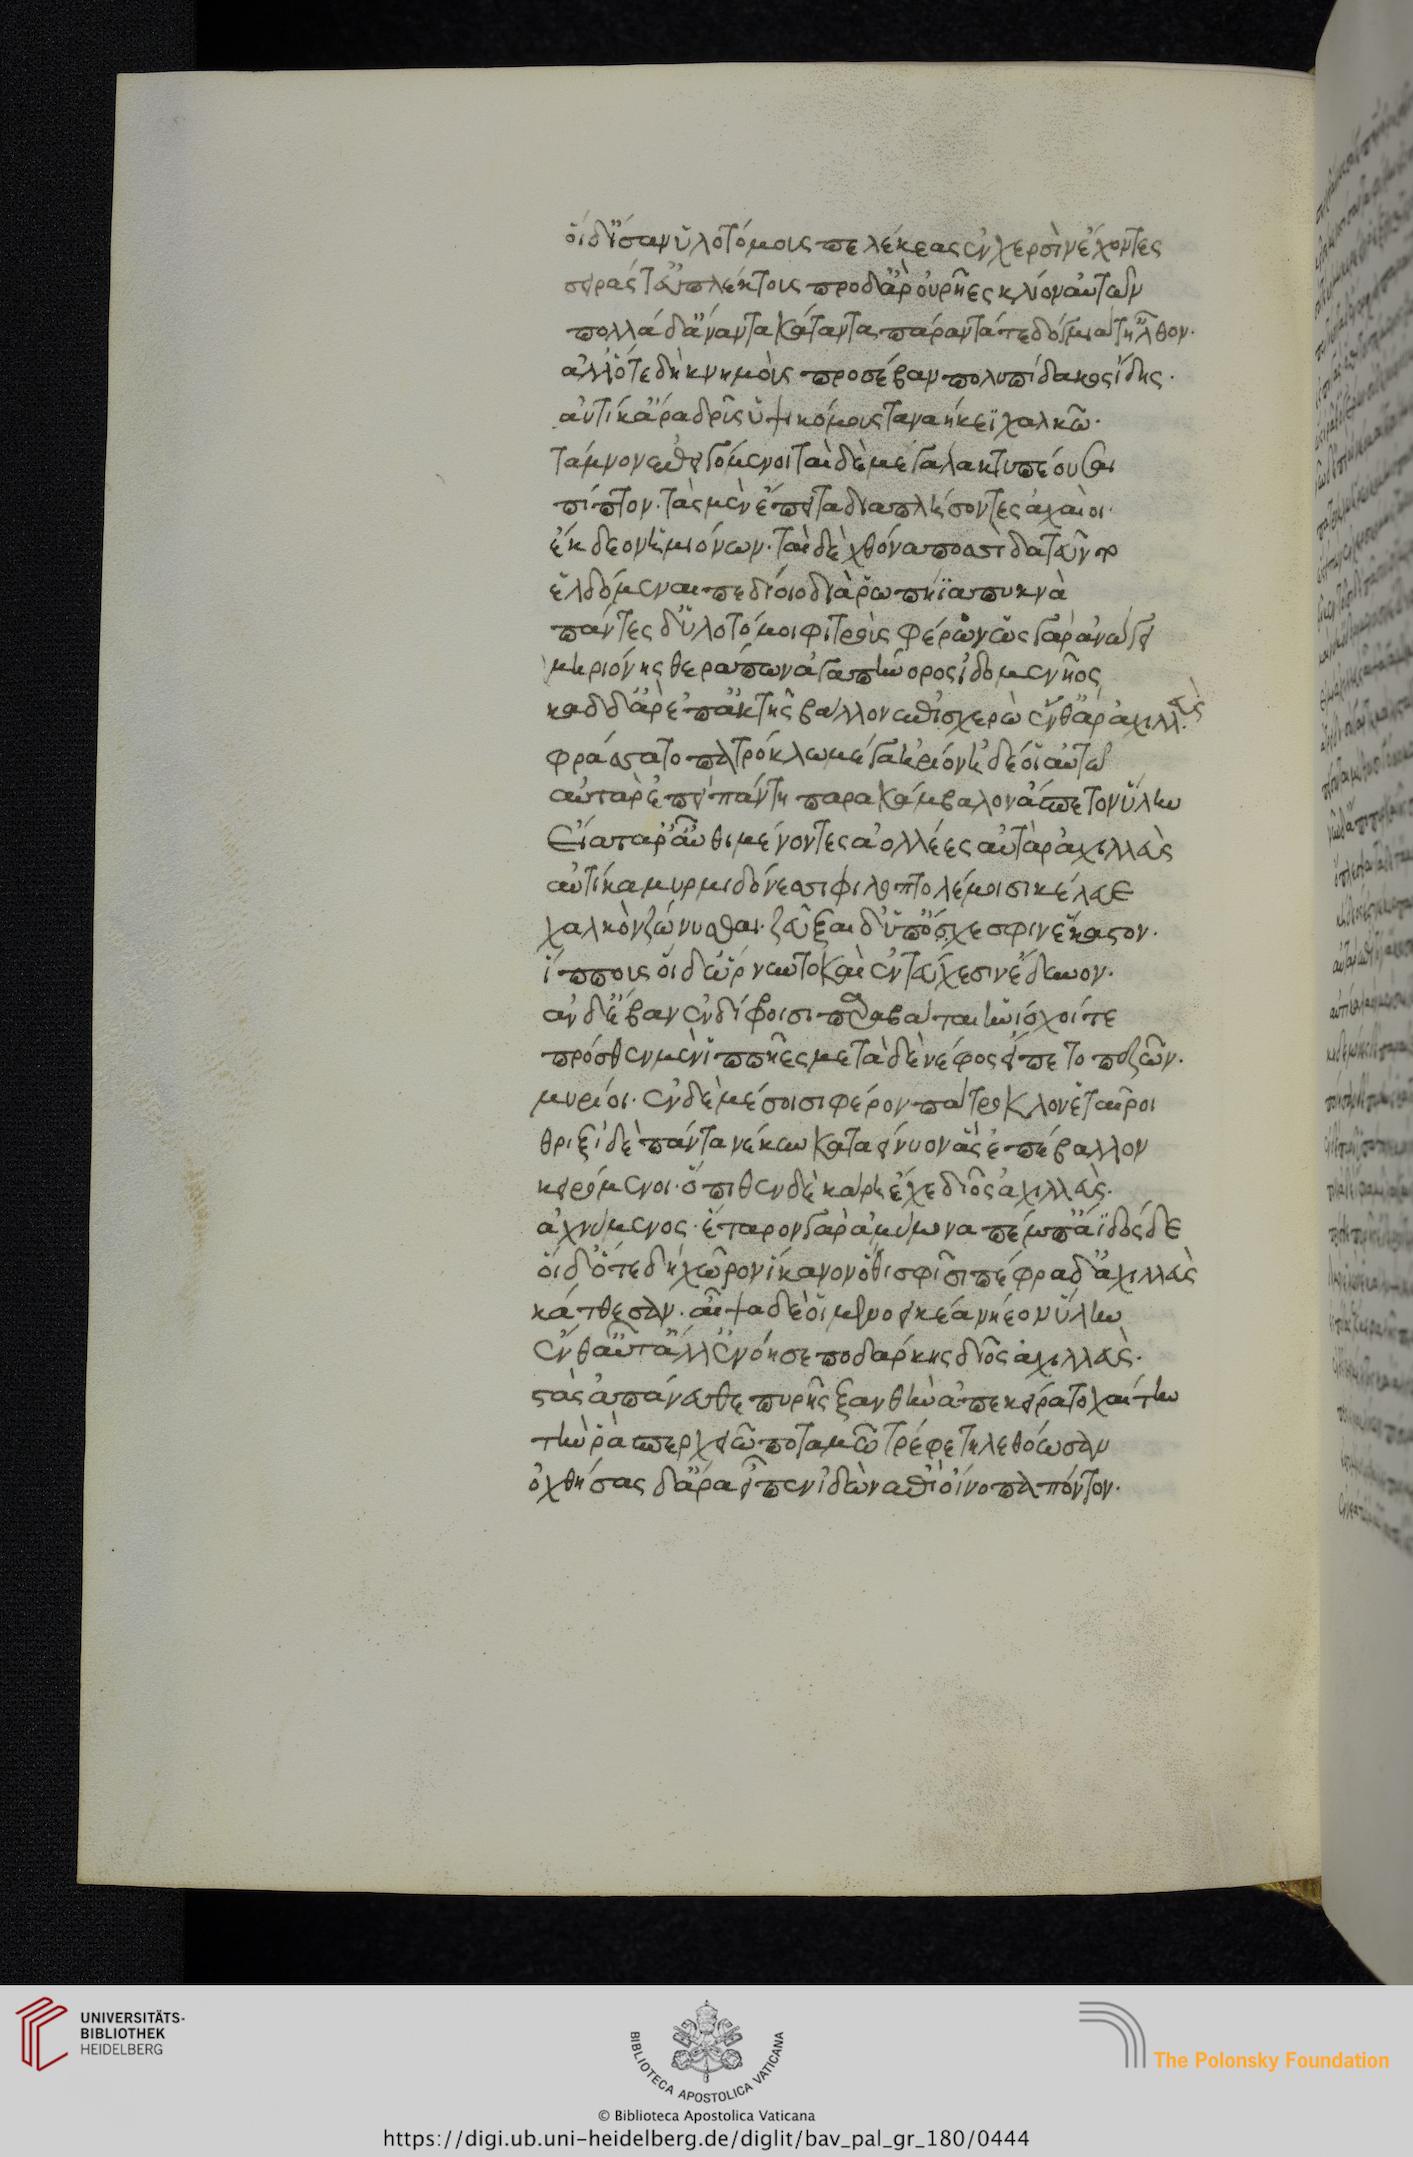 οἱ δ' ἴσαν ὑλοτόμους πελέκεας ἐν χερσὶν ἔχοντες
σειράς τ' εὐπλέκτους πρὸ δ' ἄρ' οὐρῆες κίον αὐτῶν
πολλὰ δ' ἄναντα κάταντα πάραντά τε δόχμιά τ' ἦλθον.
ἀλλ' ὅτε δὴ κνημοὺς προσέβαν πολυπίδακος ἴδης.
αὐτίκ' ἄρα δρῦς ὑψικόμους ταναήκεϊ χαλκῶ.
τάμνον ἐπειγόμενοι ταὶ δὲ μεγάλα κτυπέουσαι
πίπτον. τὰς μὲν ἔπειτα διαπλήσοντες ἀχαιοὶ.
ἔκδεον ἡμιόνων. ταὶ δὲ χθόνα ποσὶ δατεῦντο
ἐλδόμεναι πεδίοιο διὰ ῥωπήϊα πυκνὰ
πάντες δ' ὑλοτόμοι φιτροὺς φέρον ὣς γὰρ ἀνώγει
μηριόνης θεράπων ἀγαπήνορος ἰδομενῆος
καδδ' ἄρ' ἐπ' ἀκτῆς βάλλον ἐπισχερὼ ἔνθ' ἄρ' ἀχιλλεὺς
φράσσατο πατρόκλω μέγα ἠρίον ἠδέ οἷ αὐτῶ
αὐτὰρ ἐπεὶ πάντη παρακάμβαλον ἄσπετον ὕλην
εἵατ' ἄρ' αὖθι μένοντες ἀολλέες αὐτὰρ ἀχιλλεὺς
αὐτίκα μυρμιδόνεσσι φιλοπτολέμοισι κέλευε
χαλκὸν ζώνυσθαι. ζεῦξαι δ' ὑπ' ὄχεσφιν ἕκαστον.
ἵππους οἱ δ' ὤρνυντο καὶ ἐν τεύχεσιν ἔδυνον.
ἂν δ' ἔβαν ἐν δίφροισι παραιβάται ἡνίοχοί τε
πρόσθεν μὲν ἱππῆες μετὰ δὲ νέφος εἵπετο πεζῶν.
μυρίοι. ἐν δὲ μέσοισι φέρον πάτροκλον ἑταῖροι
θριξὶ δὲ πάντα νέκυν καταείνυον ἃς ἐπέβαλλον
κειρόμενοι. ὄπιθεν δὲ κάρη ἔχε δῖος ἀχιλλεὺς.
ἀχνύμενος. ἕταρον γὰρ ἀμύμονα πέμπ' ἄϊδόςδε
οἱ δ' ὅτε δὴ χῶρον ἵκανον ὅθι σφῖσι πέφραδ' ἀχιλλεὺς
κάτθεσαν. αἶψα δέ οἱ μενοεικέα νήεον ὕλην
ἔνθ' αὖτ' ἄλλ' ἐνόησε ποδάρκης δῖος ἀχιλλεὺς.
στὰς ἀπάνευθε πυρῆς ξανθὴν ἀπεκείρατο χαίτην
τὴν ῥὰ σπερχειῶ ποταμῶ τρέφε τηλεθόωσαν
ὀχθήσας δ' ἄρα εἶπεν ἰδὼν ἐπὶ οἴνοπα πόντον.
UNIVERSITÄTS-
BIBLIOTHEK
HEIDELBERG
BIBLIOTECA APOSTOLICA VATICANA
The Polonsky Foundation
© Biblioteca Apostolica Vaticana
https://digi.ub.uni-heidelberg.de/diglit/bav_pal_gr_180/0444